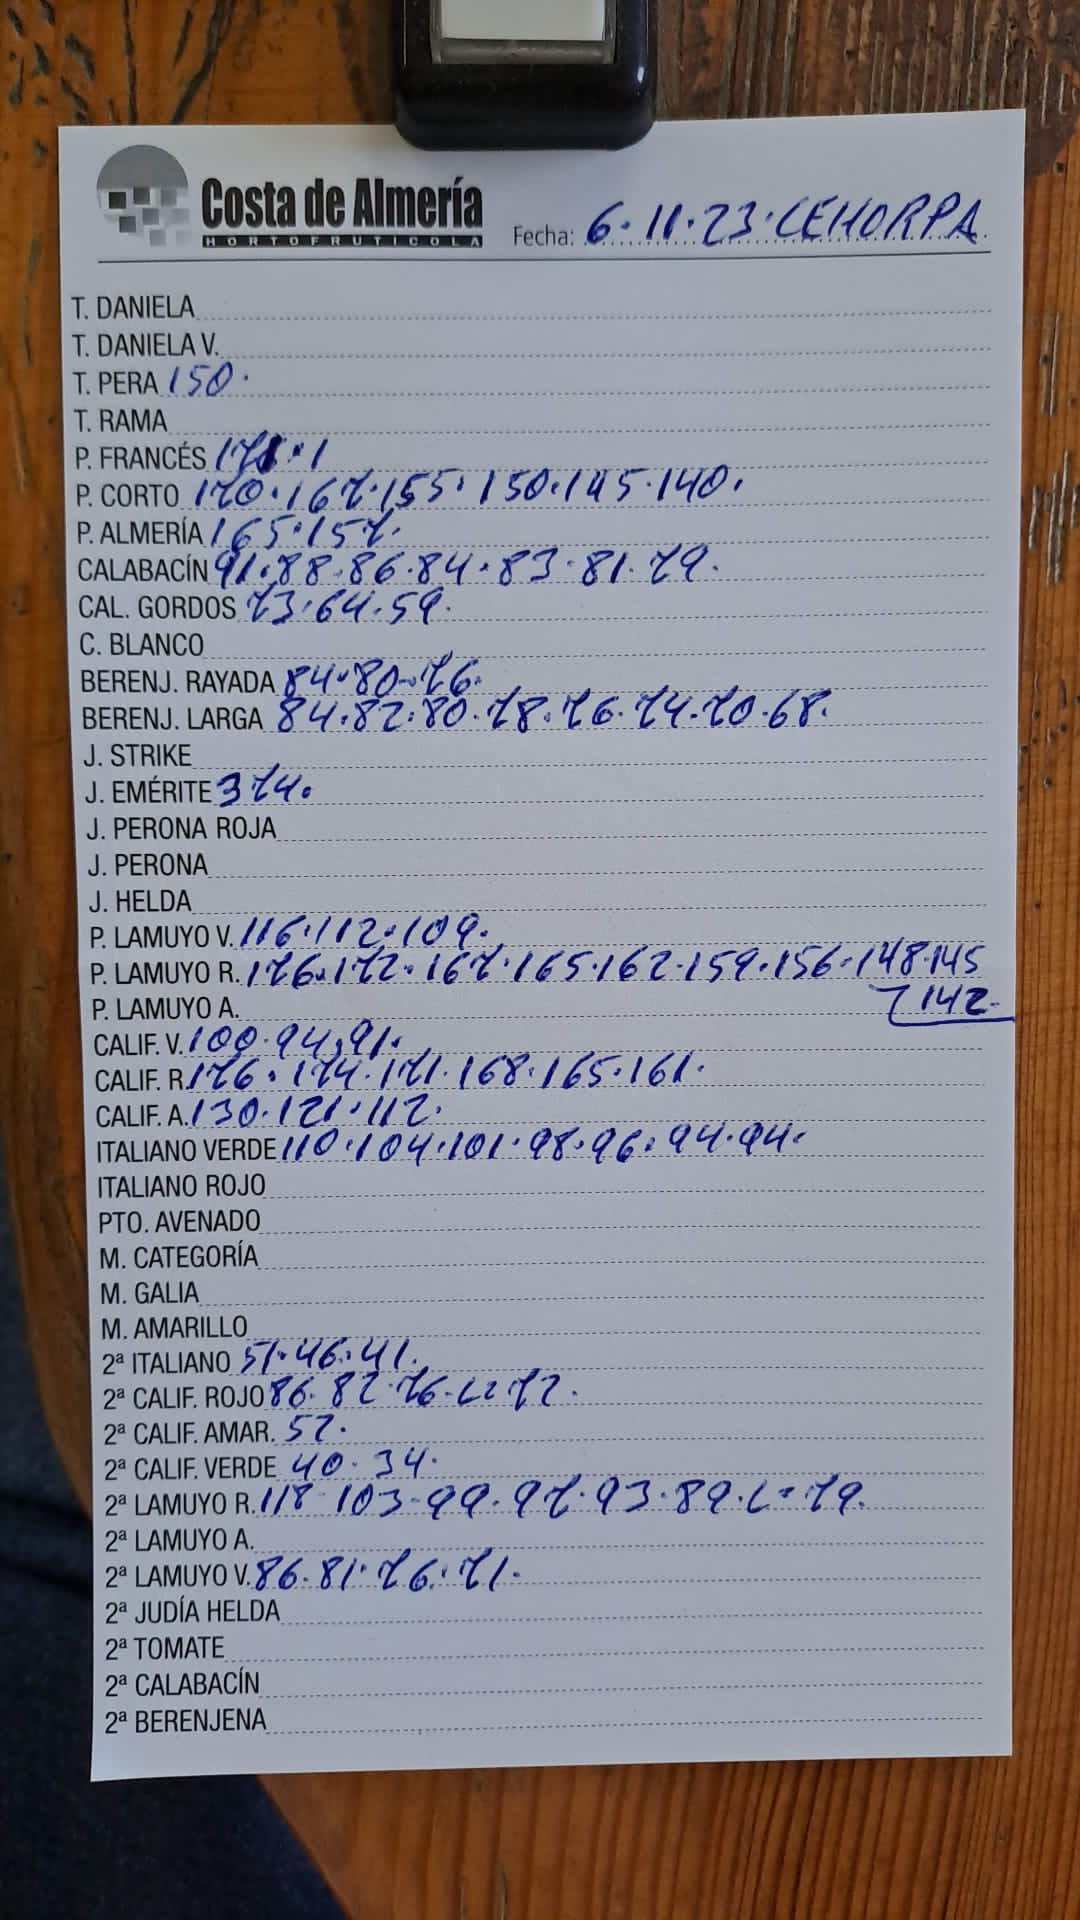 Costa de Almería
HORTOFRUTICOLA
Fecha: 6·11·23·CEHORPA
T. DANIELA
T. DANIELA V.
T. PERA 150·
T. RAMA
P. FRANCÉS
P. CORTO 170·167·155·150·145·140·
P. ALMERÍA 165·157·
CALABACÍN 91·88·86·84·83·81·79·
CAL. GORDOS 73·64·59·
C. BLANCO
BERENJ. RAYADA 84·80·76·
BERENJ. LARGA 84·82·80·78·76·74·70·68·
J. STRIKE
J. EMÉRITE 374·
J. PERONA ROJA
J. PERONA
J. HELDA
P. LAMUYO V. 116·112·109·
P. LAMUYO R. 176·172·167·165·162·159·156·148·145
142·
P. LAMUYO A.
CALIF. V. 100·94·91·
CALIF. R. 176·174·171·168·165·161·
CALIF. A. 130·121·112·
ITALIANO VERDE 110·104·101·98·96·94·94·
ITALIANO ROJO
PTO. AVENADO
M. CATEGORÍA
M. GALIA
M. AMARILLO
2ª ITALIANO 51·46·41·
2ª CALIF. ROJO 86·82·76·L=72·
2ª CALIF. AMAR. 52·
2ª CALIF. VERDE 40·34·
2ª LAMUYO R. 118·103·99·97·93·89·L=79·
2ª LAMUYO A.
2ª LAMUYO V. 86·81·76·71·
2ª JUDÍA HELDA
2ª TOMATE
2ª CALABACÍN
2ª BERENJENA